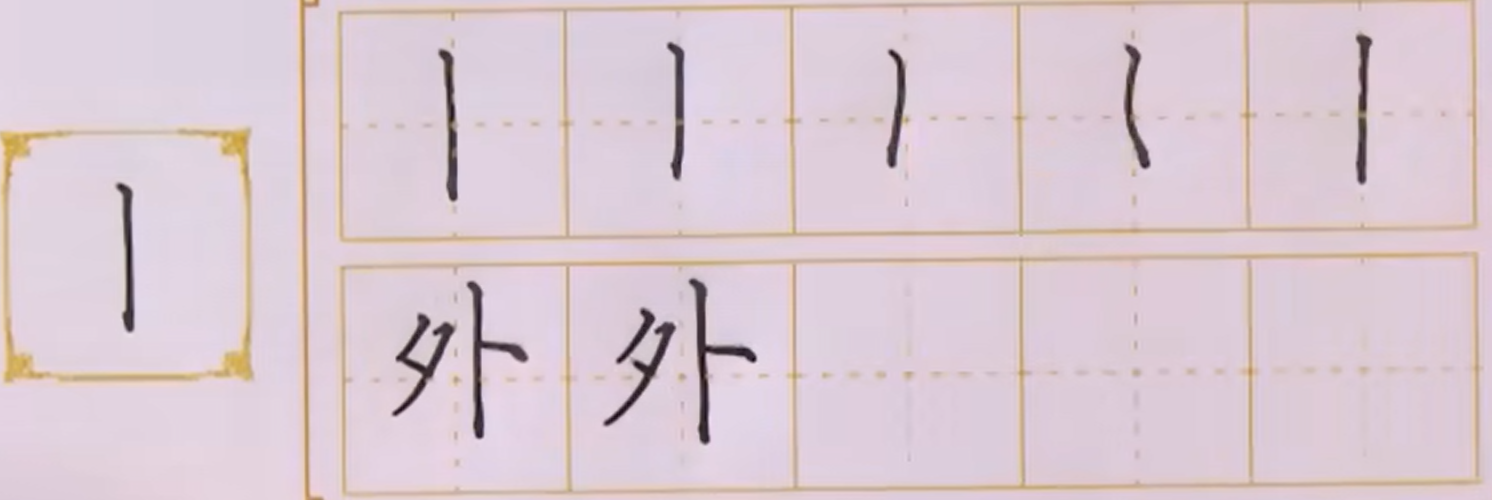 丨
丨 丨 丨 丨 丨
外 外